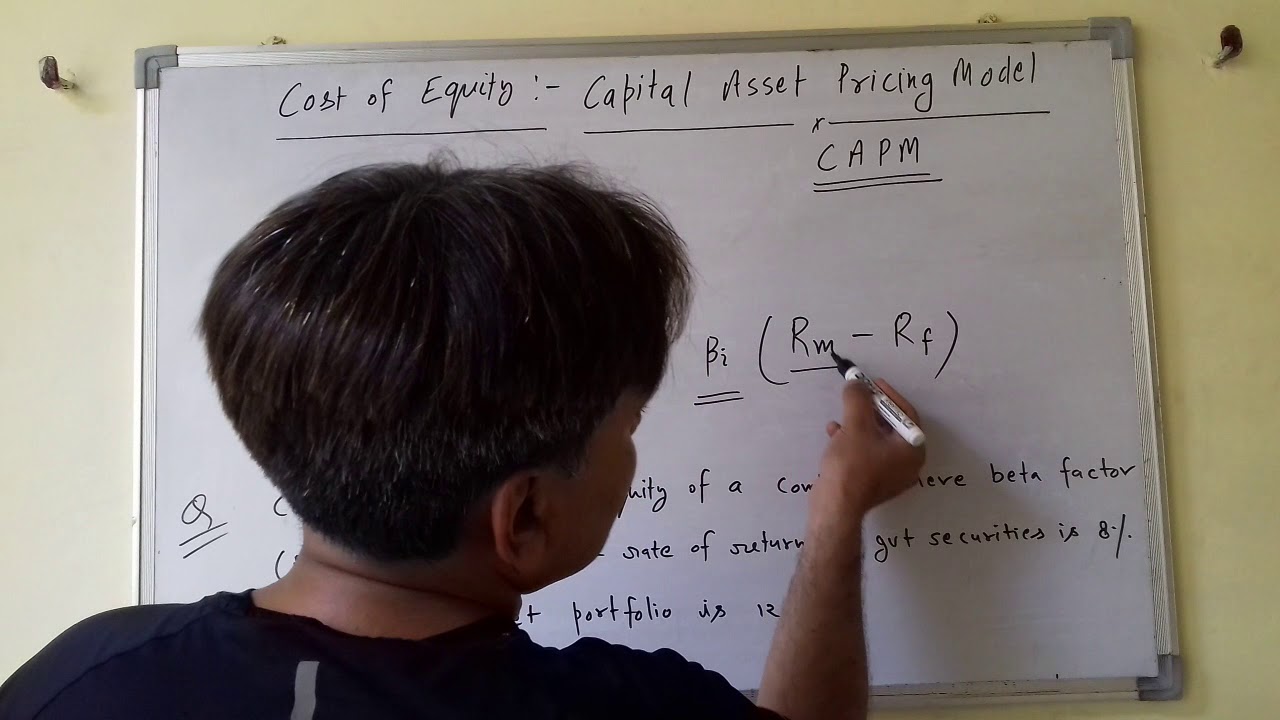 Cost of Equity :- Capital Asset Pricing Model
CAPM
βi (Rm - Rf)
Q of a beta factor
rate of return gvt securities is 8%.
portfolio is 12